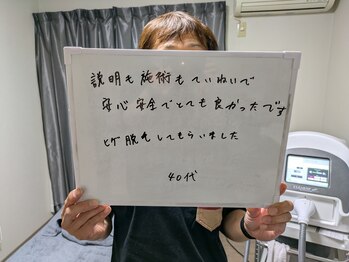 説明も施術もていねいで
安心安全でとても良かったです
ヒゲ脱毛してもらいました
40代